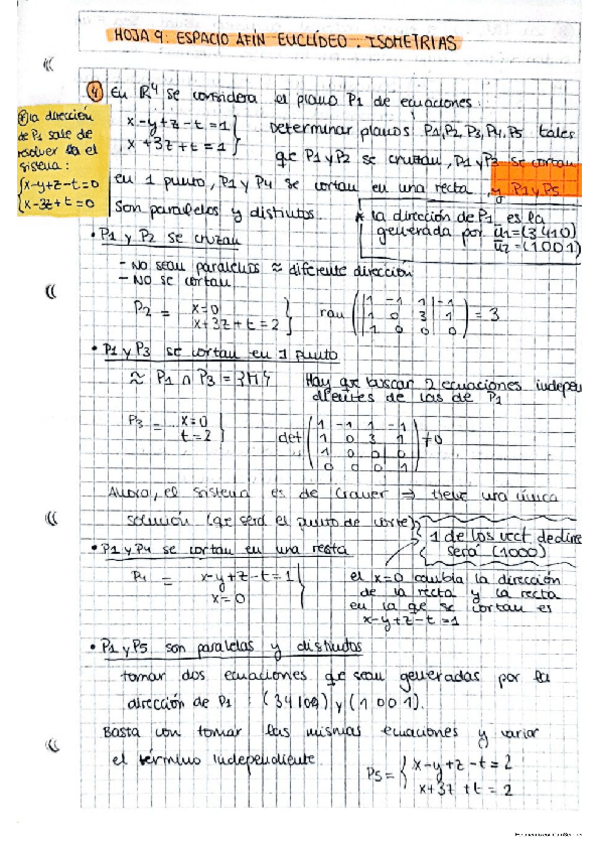 HOJA 9. ESPACIO AFÍN EUCLÍDEO. ISOMETRIAS
4 En ℝ⁴ se considera el plano P1 de ecuaciones:
x-y+z-t=1
x+3z+t=1
Determinar planos P1,P2,P3,P4,P5 tales
que P1 y P2 se cruzan, P1 y P3 se cortan
en 1 punto, P1 y P4 se cortan en una recta, y P1 y P5
Son paralelos y distintos.
* la dirección
de P1 sale de
resolver el
sistema:
x-y+z-t=0
x-3z+t=0
* la dirección de P1 es la
generada por ū1=(3410)
ū2=(1001)
• P1 y P2 se cruzan
- No sean paralelos ≈ diferente dirección
- No se cortan
P2 = x=0
x+3z+t=2
ran
1 -1 1 -1
1 0 3 1
1 0 0 0
= 3
• P1 y P3 se cortan en 1 punto
≈ P1 ∩ P3 = {M}
Hay que buscar 2 ecuaciones indepen
dientes de las de P1
P3 = x=0
t=2
det
1 -1 1 -1
1 0 3 1
1 0 0 0
0 0 0 1
≠0
Ahora, el sistema es de Cramer ⇒ tiene una única
solución (que será el punto de corte)
• P1 y P4 se cortan en una recta
1 de los vect. de direc
será (1000)
P4 = x-y+z-t=1
x=0
el x=0 cambia la dirección
de la recta y la recta
en la que se cortan es
x-y+z-t=1
• P1 y P5 son paralelas y distintos
tomar dos ecuaciones que sean generadas por la
dirección de P1: (3410) y (1001).
Basta con tomar las mismas ecuaciones y variar
el término independiente.
P5 = x-y+z-t=2
x+3z+t=2